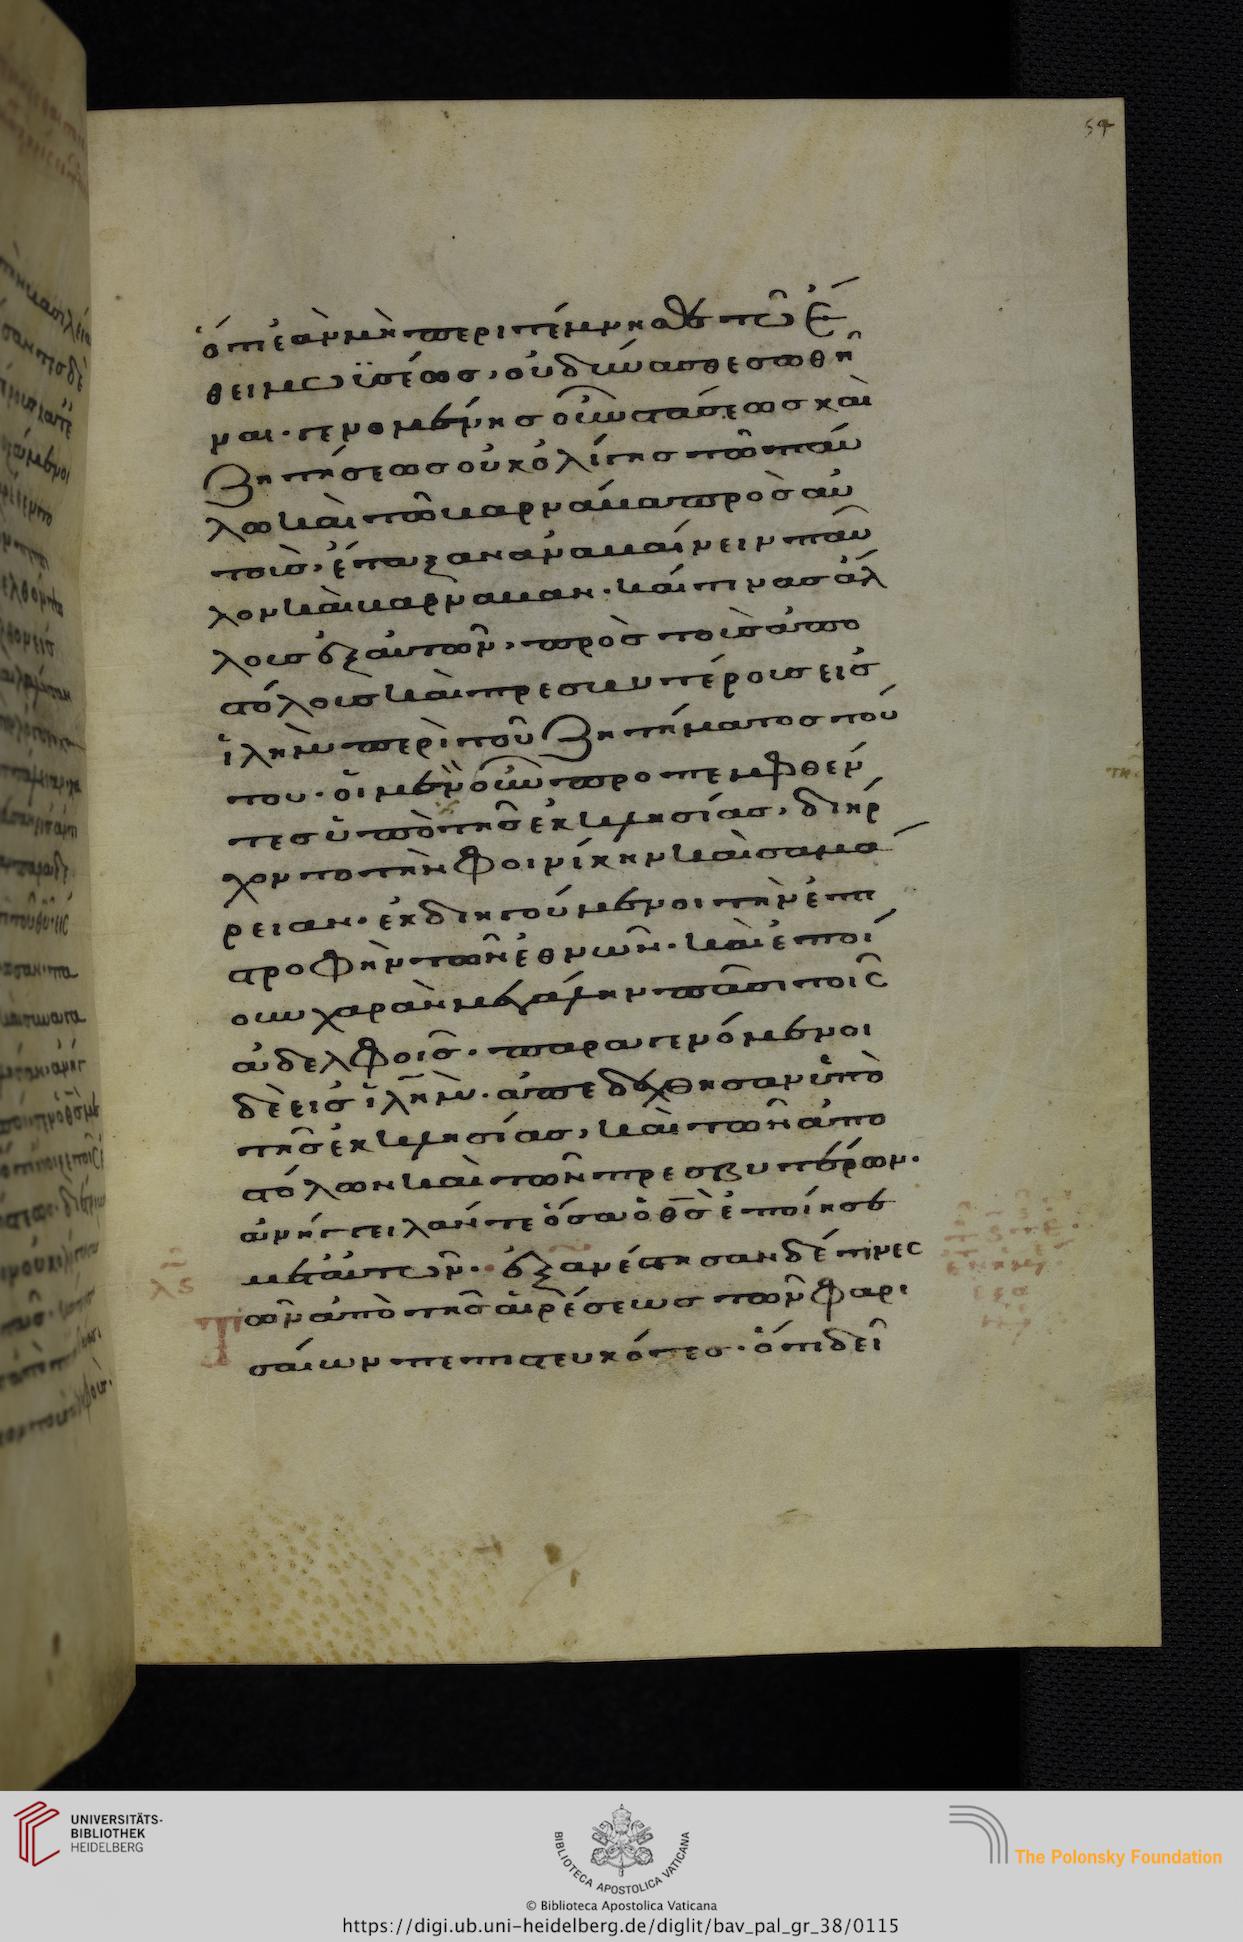 54
ὅτι ἐὰν μὴ περιτέμνησθε τῶ ἔ
θει μωϊσέως, οὐ δύνασθε σωθῆ
ναι. γενομένης οὖν στάσεως καὶ
ζητήσεως οὐκ ὀλίγης τῶ παύ
λω καὶ τῶ βαρνάβα πρὸς αὐ
τοὺς, ἔταξαν ἀναβαίνειν παῦ
λον καὶ βαρνάβαν. καί τινας ἄλ
λους ἐξ αὐτῶν, πρὸς τοὺς ἀπο
στόλους καὶ πρεσβυτέρους εἰς
ἱλὴμ περὶ τοῦ ζητήματος τού
του. οἱ μὲν οὖν προπεμφθέν
τες ὑπὸ τῆς ἐκκλησίας, διήρ
χοντο τὴν φοινίκην καὶ σαμά
ρειαν. ἐκδιηγούμενοι τὴν ἐπι
στροφὴν τῶν ἐθνῶν. καὶ ἐποί
ουν χαρὰν μεγάλην πᾶσι τοῖς
ἀδελφοῖς. παραγενόμενοι
δὲ εἰς ἱλὴμ. ἀπεδέχθησαν ὑπὸ
τῆς ἐκκλησίας, καὶ τῶν ἀπο
στόλων καὶ τῶν πρεσβυτέρων.
ἀνήγγειλάν τε ὅσα ὁ θς ἐποίησε
μετ αὐτῶν. ἐξανέστησαν δέ τινες
τῶν ἀπὸ τῆς αἱρέσεως τῶν φαρι
σαίων πεπιστευκότες. ὅτι δεῖ
λς
UNIVERSITÄTS-
BIBLIOTHEK
HEIDELBERG
BIBLIOTECA APOSTOLICA VATICANA
The Polonsky Foundation
© Biblioteca Apostolica Vaticana
https://digi.ub.uni-heidelberg.de/diglit/bav_pal_gr_38/0115